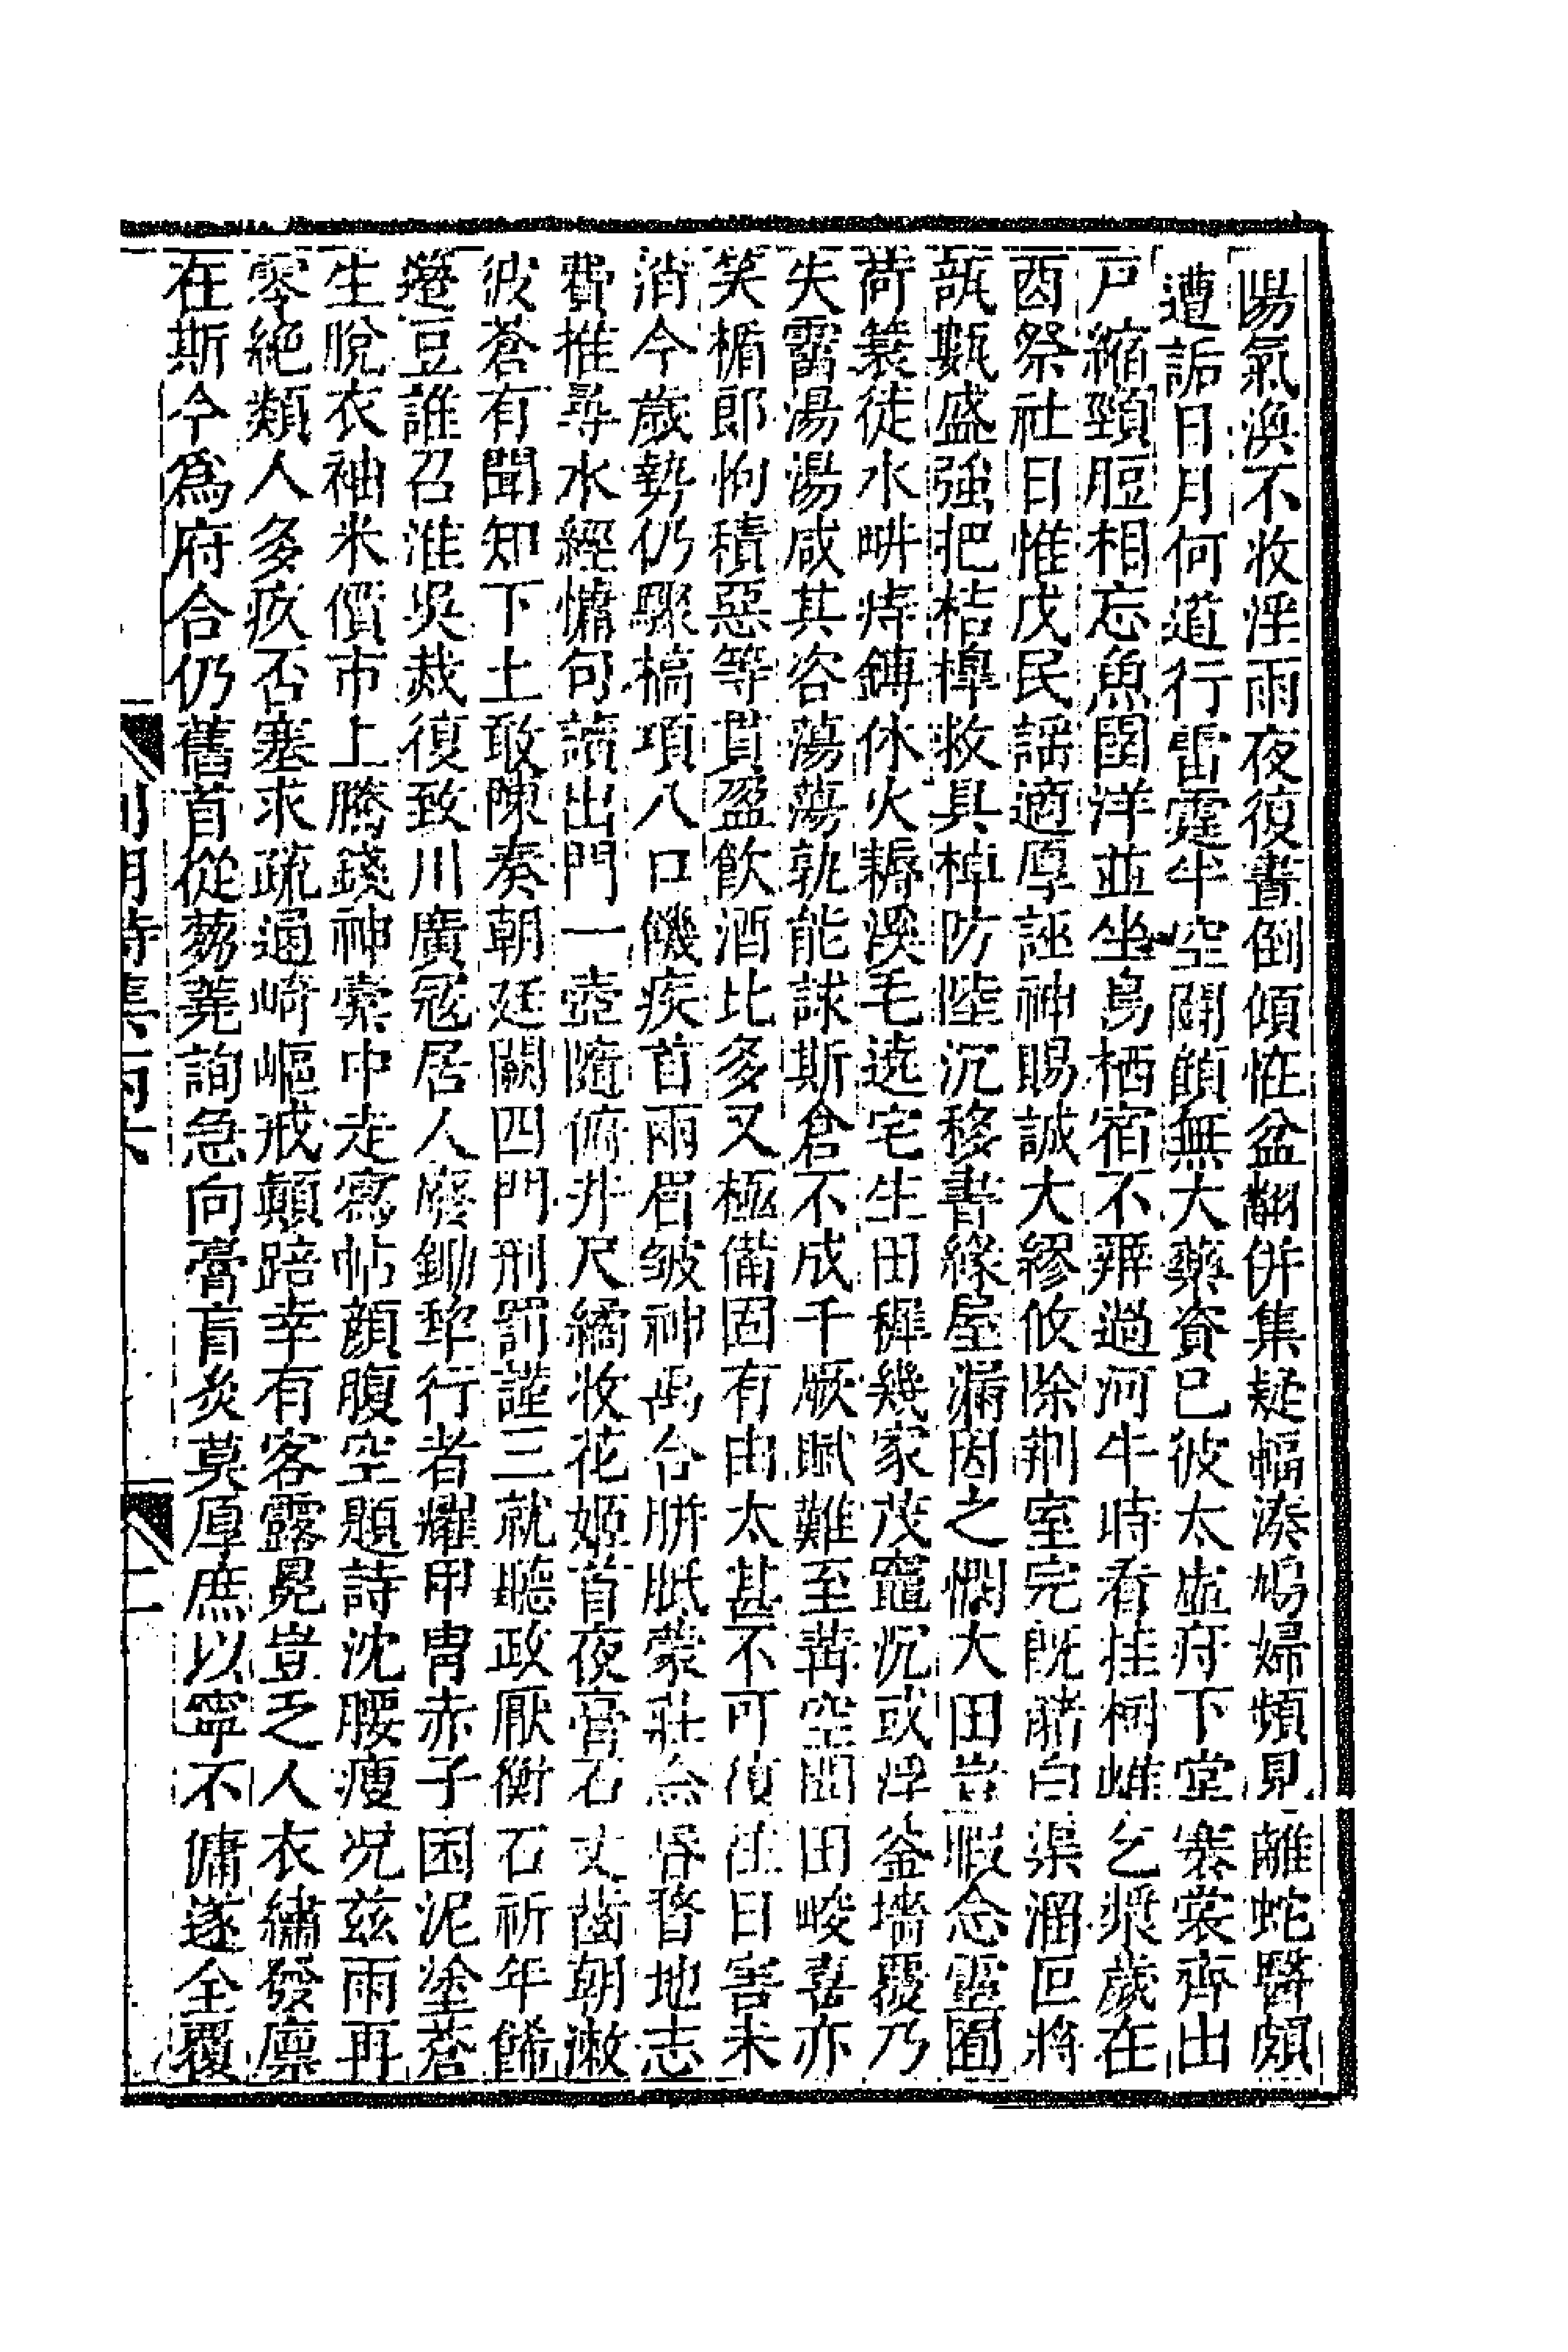 陽氣渙不收淫雨夜復晝倒傾怪盆翻併集疑蝠湊鳩婦頻見離蛇醫頗
遭詬日月何道行雷霆半空鬬頗無大藥資已彼太虛疛下堂褰裳齊出
戸縮頸脰相忘魚圉洋並坐鳥栖宿不辨過河牛時看挂樹雌乞漿歲在
酉祭社日惟戊民謡適厚誣神賜誠大繆攸除荆室完旣瀦白渠溜叵將
瓿甊盛強把桔槹救具棹防陸沉移書緣屋漏因之憫大田豈暇念靈囿
荷簑徒水畊痔鎛休火耨溪毛遶宅生田穉幾家茂竈沉或浮釜墻覆乃
失霤湯湯咸其咨蕩蕩孰能誺斯倉不成千厥賦難至菁空聞田畯喜亦
笑楯郎怐積惡等貫盈飲酒比多又極備固有由太甚不可須往日害未
消今歲勢仍驟槁項八口饑疾首兩眉皴神禹合胼胝蒙莊叅昏瞀地志
費推尋水經慵句讀出門一壺隨俯井尺繘收花姬首夜膏石丈齒朝漱
彼蒼有聞知下土敢陳奏朝廷闢四門刑罰謹三就聽政厭衡石祈年餙
籩豆誰召淮吳烖復致川廣寇居人廢鋤犂行者耀甲冑赤子困泥塗蒼
生脫衣袖米價市上騰錢神橐中走寫帖顏腹空題詩沈腰瘦况兹雨再
零絶類人多疚否塞求疏通崎嶇戒顛踣幸有客露冕豈乏人衣繡發廪
在斯今爲府合仍舊首從蒭蕘詢急向膏肓灸莫厚庶以寜不傭遂全覆
二